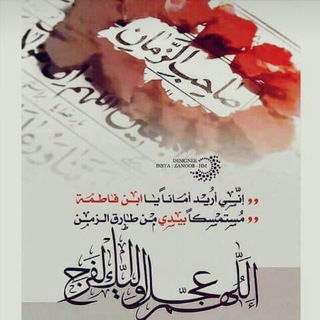 صاحب الزمان
DESIGNER
INSTA : ZANOOB - HM
إنّي أريد أماناً يا ابن فاطمة
مُستمسكاً بيدي من طارق الزمن
اللهم عجل لوليك الفرج